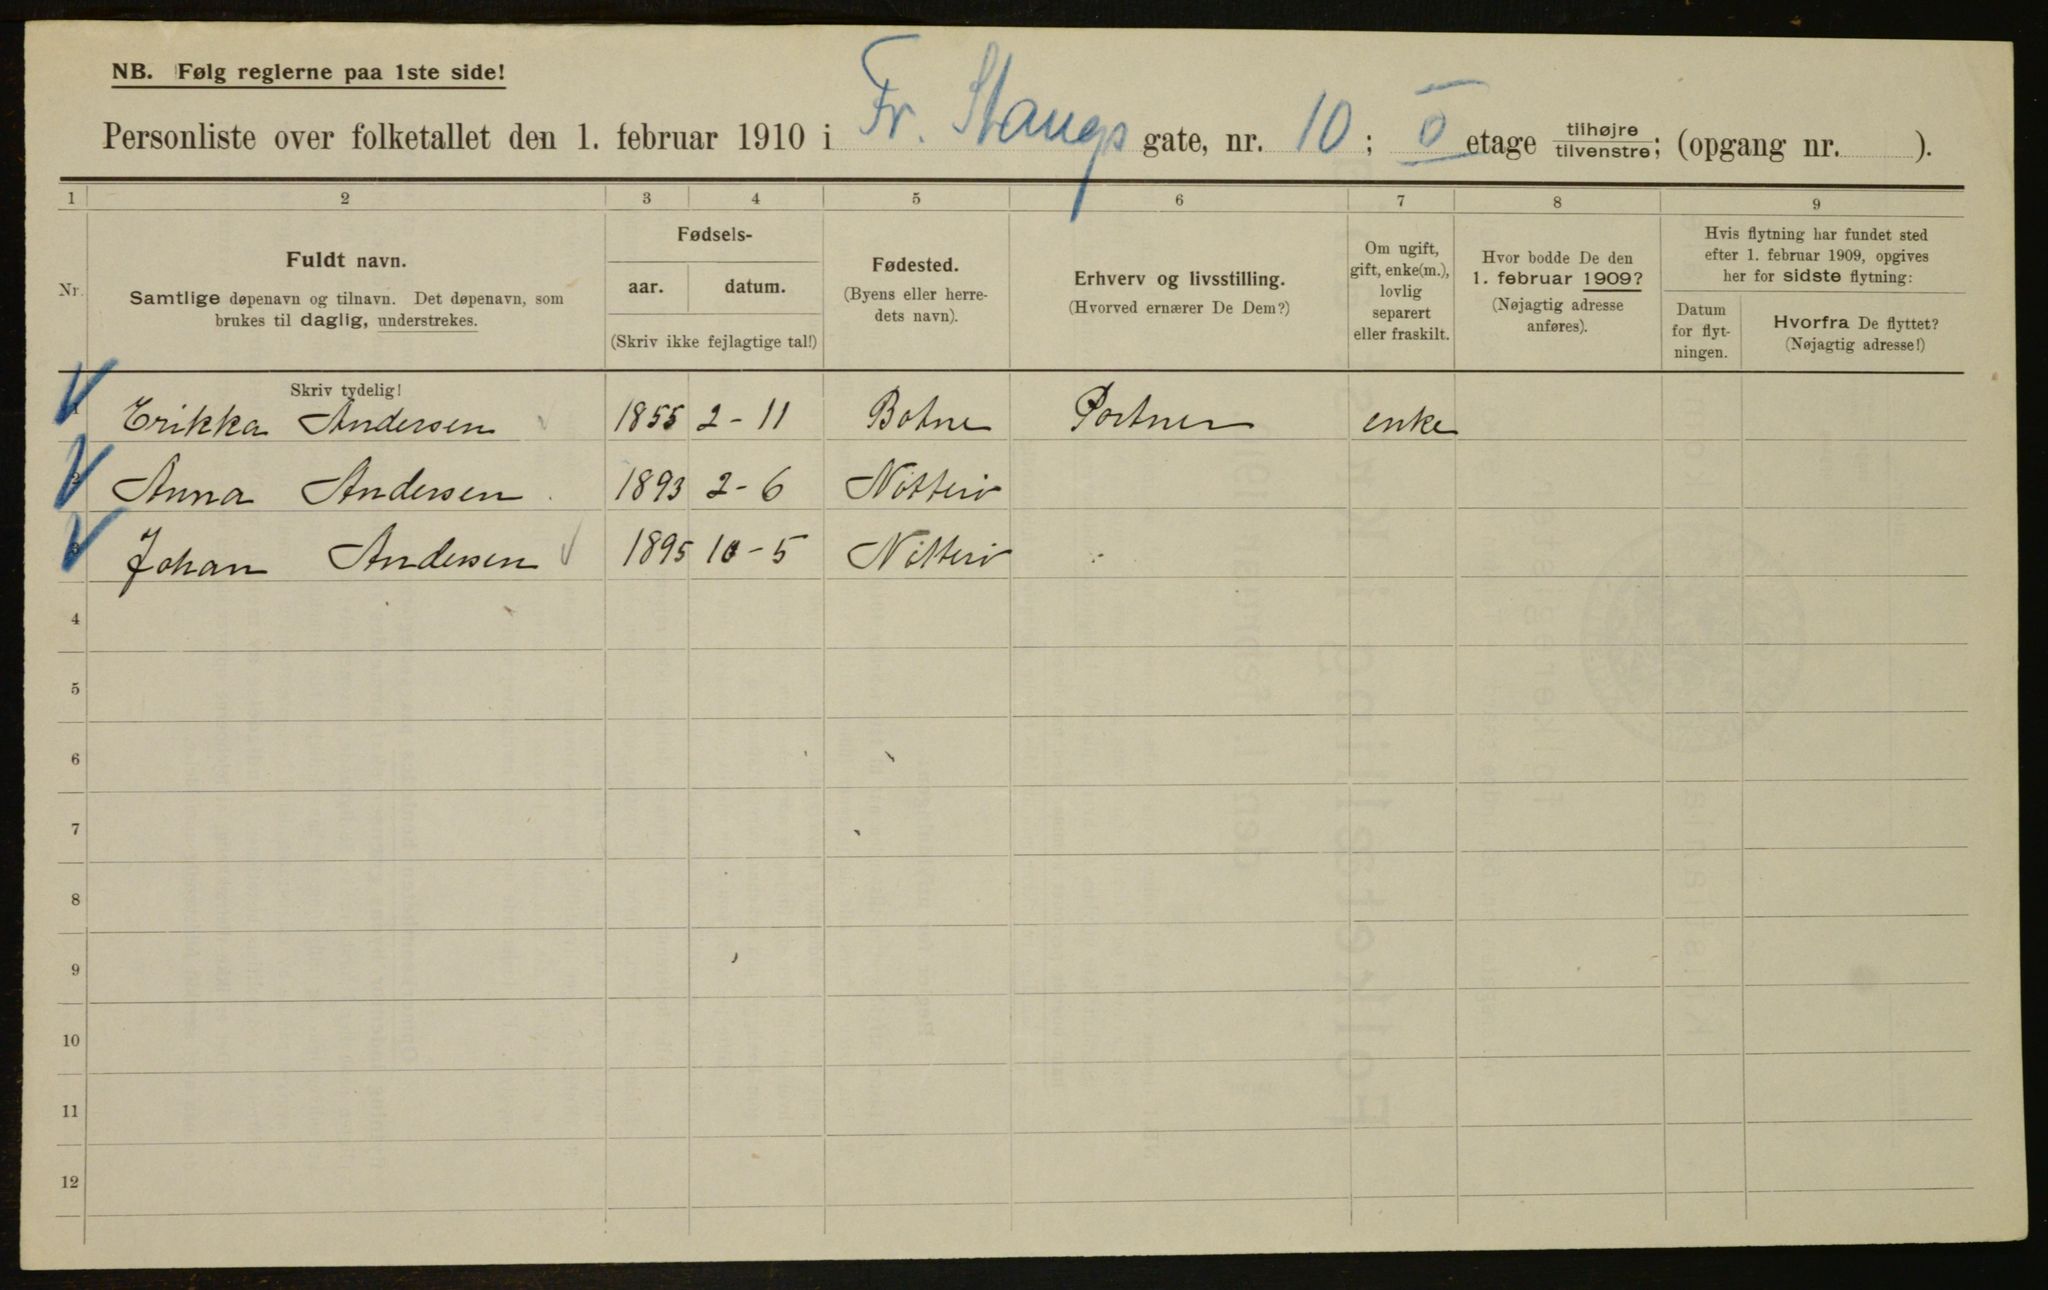 NB. Følg reglerne paa 1ste side!
Personliste over folketallet den 1. februar 1910 i Fr. Stangs gate, nr. 10; etage tilhøjre tilvenstre; (opgang nr. ).
1 2 3 4 5 6 7 8 9
Nr.
Fuldt navn.
Samtlige døpenavn og tilnavn. Det døpenavn, som
brukes til daglig, understrekes.
Fødsels-
aar. datum.
(Skriv ikke fejlagtige tal!)
Fødested.
(Byens eller herre-
dets navn).
Erhverv og livsstilling.
(Hvorved ernærer De Dem?)
Om ugift,
gift, enke(m.),
lovlig
separert
eller fraskilt.
Hvor bodde De den
1. februar 1909?
(Nøjagtig adresse
anføres).
Hvis flytning har fundet sted
efter 1. februar 1909, opgives
her for sidste flytning:
Datum
for flyt-
ningen.
Hvorfra De flyttet?
(Nøjagtig adresse!)
Skriv tydelig!
1 Erikka Andersen 1855 2-11 Botne Portner enke
2 Anna Andersen 1893 2-6 Nötterö
3 Johan Andersen 1895 10-5 Nötterö
4
5
6
7
8
9
10
11
12